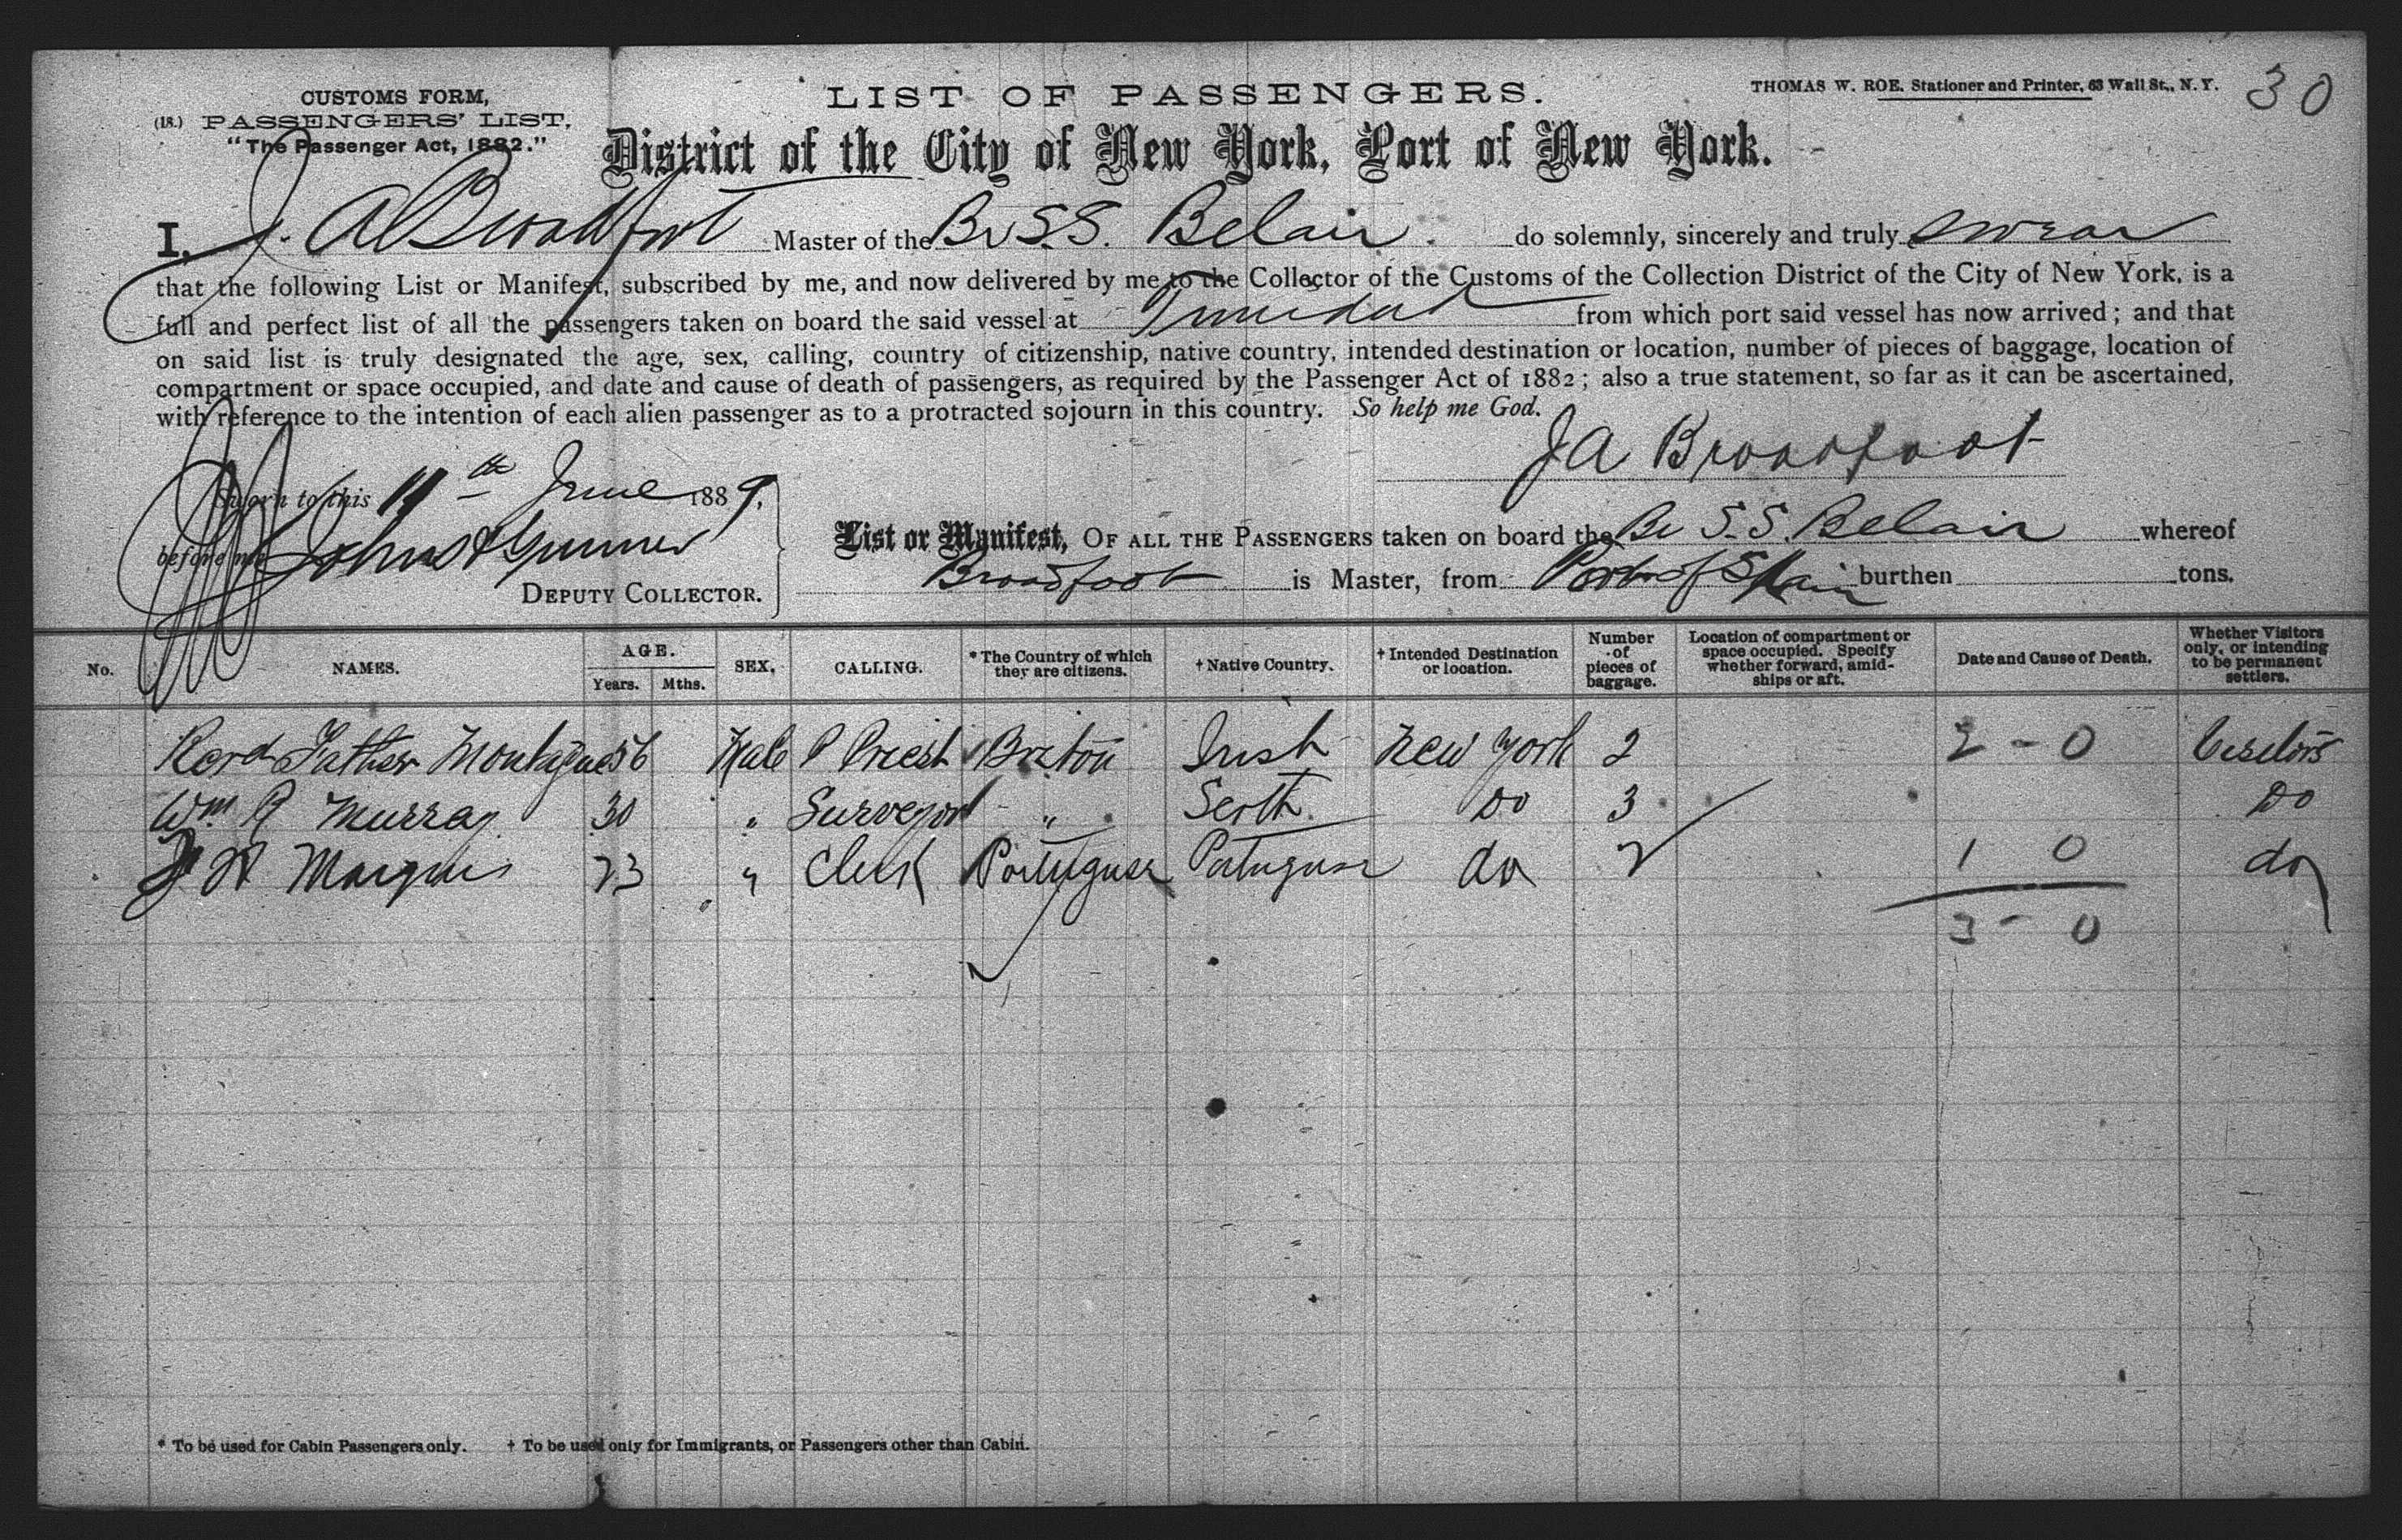 CUSTOMS FORM,
(18.) PASSENGERS' LIST,
"The Passenger Act, 1882."
LIST OF PASSENGERS.
THOMAS W. ROE, Stationer and Printer, 63 Wall St., N. Y.
30
District of the City of New York, Port of New York.
I, J. A Broadfoot Master of the Br S.S. Belair. do solemnly, sincerely and truly swear
that the following List or Manifest, subscribed by me, and now delivered by me to the Collector of the Customs of the Collection District of the City of New York, is a
full and perfect list of all the passengers taken on board the said vessel at Trinidad from which port said vessel has now arrived; and that
on said list is truly designated the age, sex, calling, country of citizenship, native country, intended destination or location, number of pieces of baggage, location of
compartment or space occupied, and date and cause of death of passengers, as required by the Passenger Act of 1882; also a true statement, so far as it can be ascertained,
with reference to the intention of each alien passenger as to a protracted sojourn in this country. So help me God.
J A Broadfoot
Sworn to this 11th June 1889,
before me
DEPUTY COLLECTOR.
List or Manifest, OF ALL THE PASSENGERS taken on board the Br S.S. Belair whereof
Broadfoot is Master, from Port of Spain burthen tons.
No. NAMES. AGE. Years. Mths. SEX, CALLING. *The Country of which they are citizens. †Native Country. †Intended Destination or location. Number of pieces of baggage. Location of compartment or space occupied. Specify whether forward, amidships or aft. Date and Cause of Death. Whether Visitors only, or intending to be permanent settlers.
Father Montague 56 Male P Priest Briton Irish New York 2 2 - 0 Visitors
Wm R Murray 30 " Surveyor " Scoth 3 Do
H Marques 23 " Clerk Portuguese Portuguese do 2 1 0 do
3 - 0
* To be used for Cabin Passengers only. † To be used only for Immigrants, or Passengers other than Cabin.